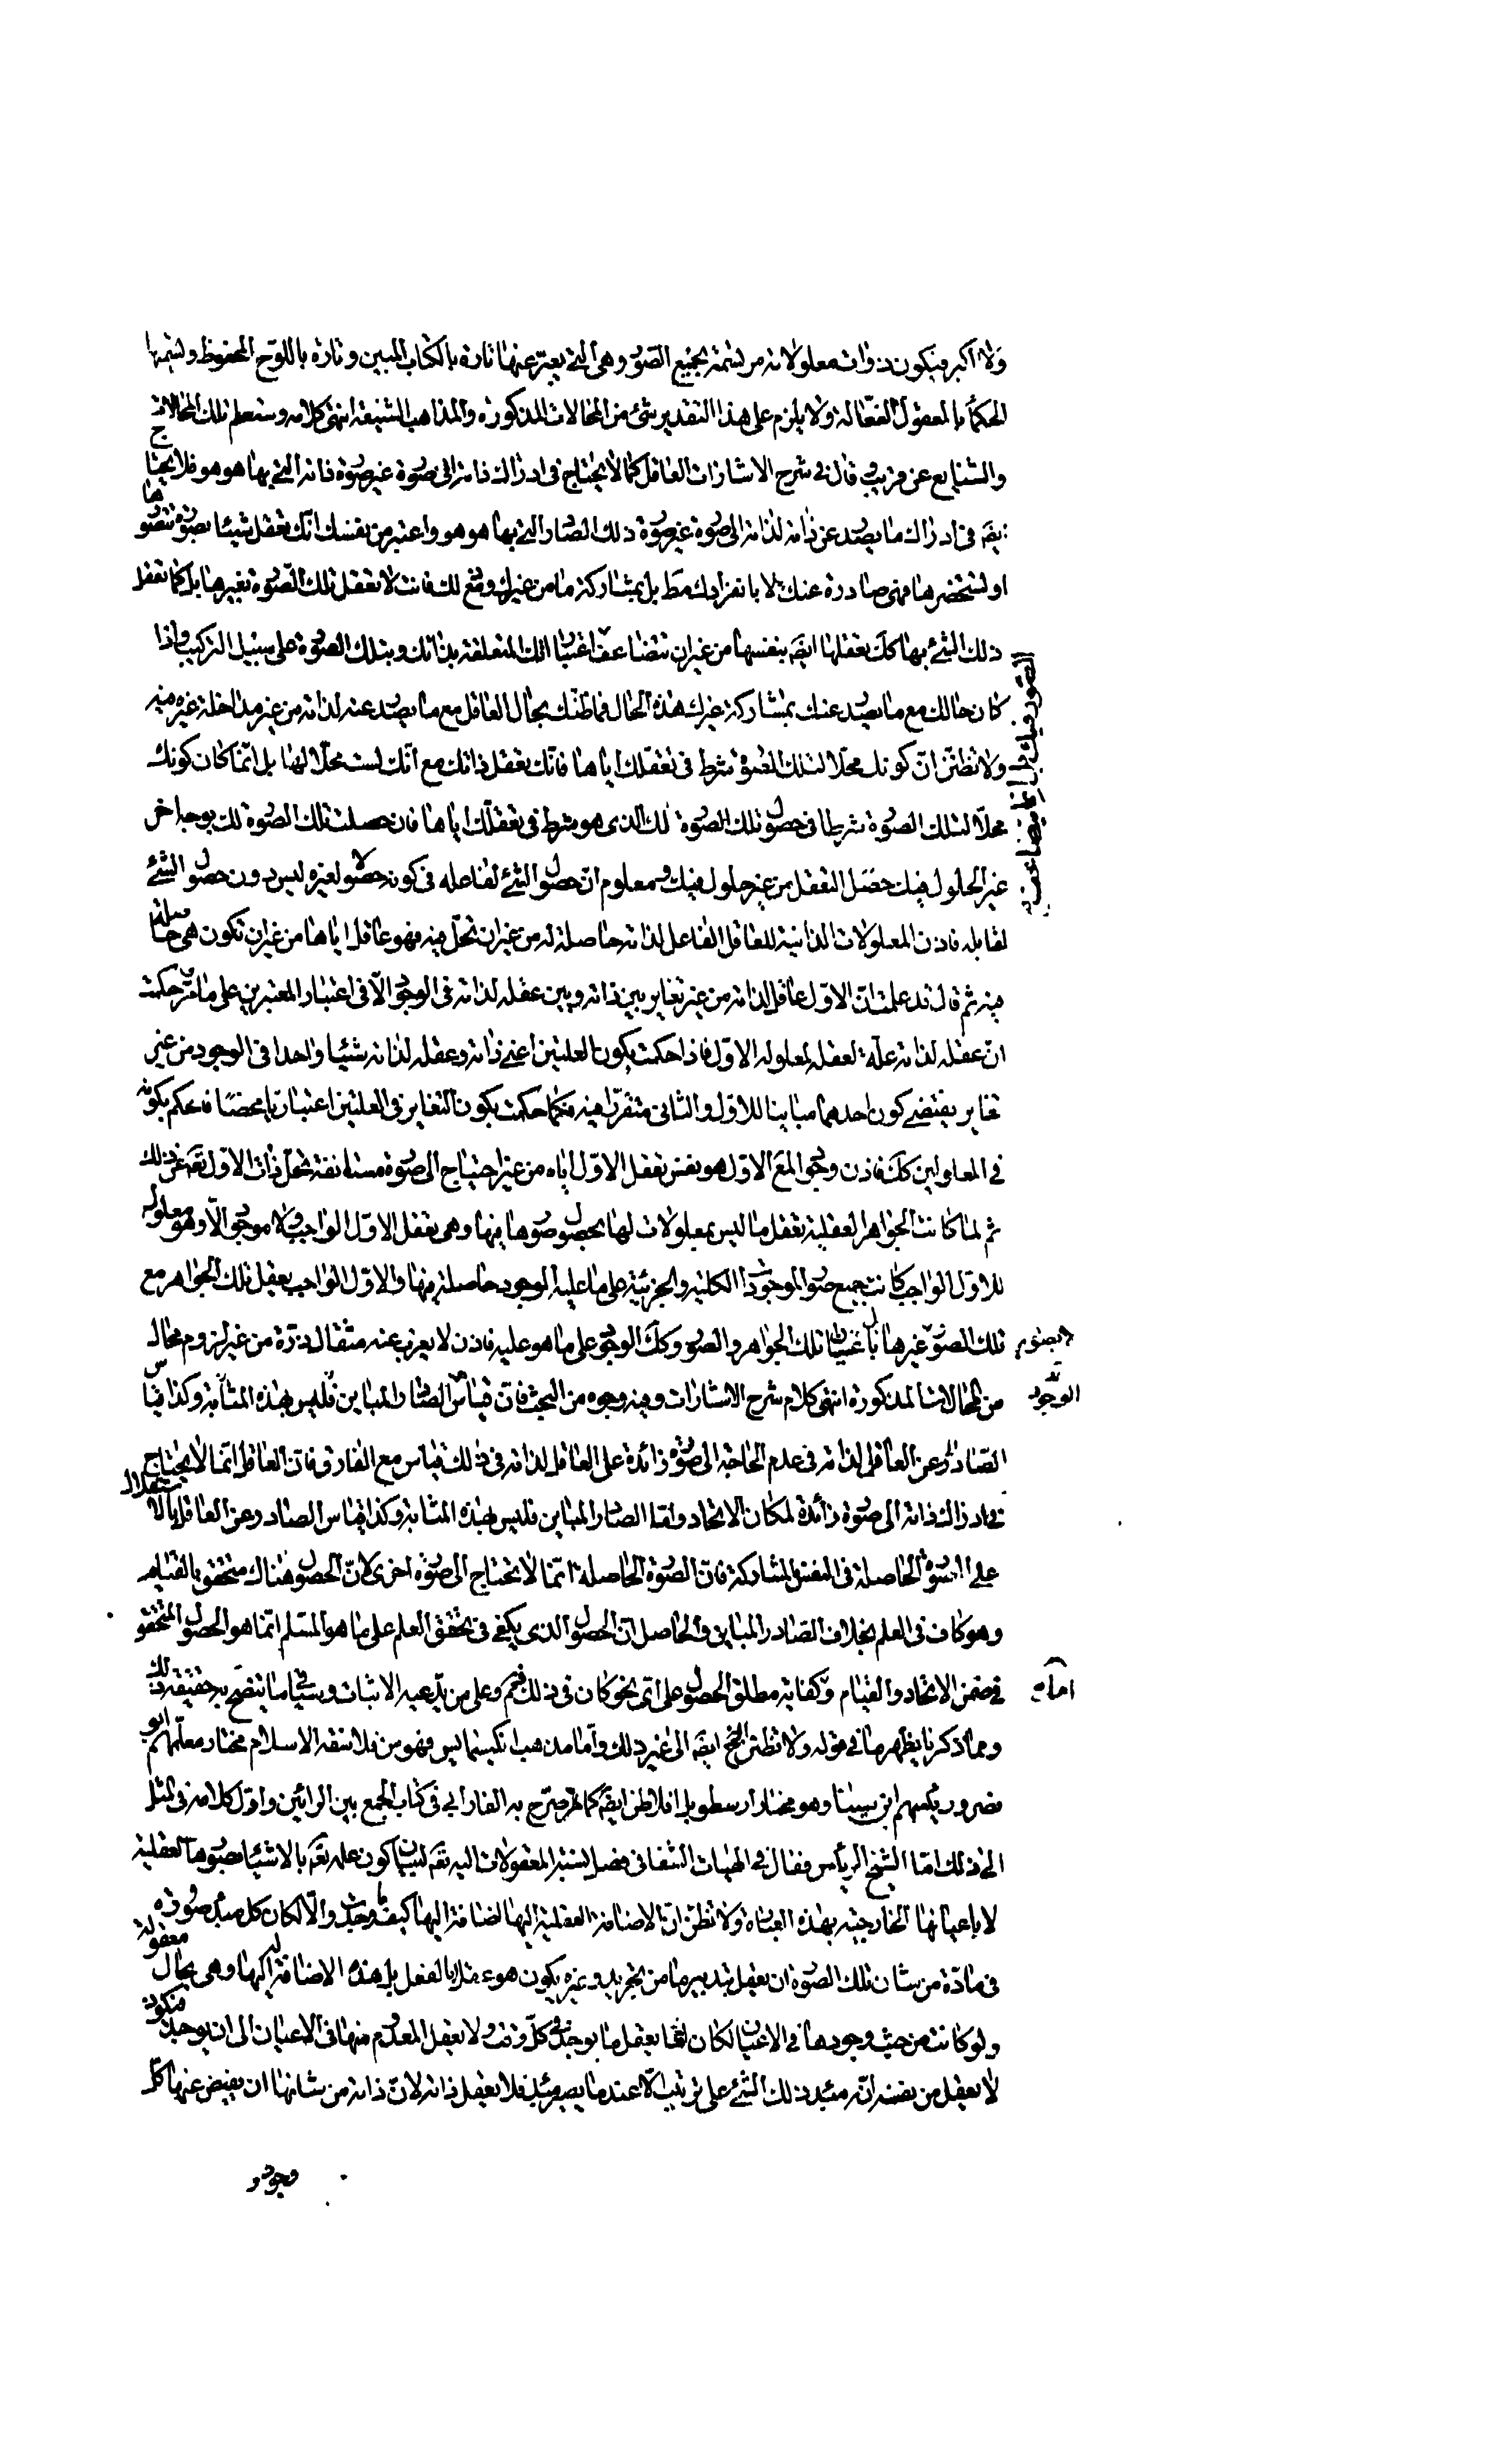 ولا اكبر فيكون ذوات معلولاته مرتسمة بجميع الصور وهى التى يعبّر عنها تارة بالكتاب المبين وتارة باللوح المحفوظ وتسميها
الحكماء بالعقول الفعالة ولا يلزم على هذا التقدير شئ من المحالات المذكورة والمذاهب الشنيعة انتهى كلامه وستعلم تلك المحالات
والشنايع عن قريب قال فى شرح الاشارات العاقل كما لا يحتاج فى ادراك ذاته الى صورة غير صورة ذاته التى بها هو هو فلا يحتاج
ايضا فى ادراك ما يصدر عن ذاته لذاته الى صورة غير صورة ذلك الصادر التى بها هو هو واعتبر من نفسك انك تعقل شيئا بصورة تتصورها
او تستحضرها فهى صادرة عنك لا بانفرادك مط بل بمشاركة ما من غيرك ومع ذلك فانت لا تعقل تلك الصورة بغيرها بل كما تعقل
ذلك الشئ بها كك تعقلها ايضا بنفسها من غير ان تتضاعف اعتباراتك المتعلقة بذاتك وبتلك الصورة على سبيل التركيب واذا
كان حالك مع ما يصدر عنك بمشاركة غيرك هذه الحال فما ظنك بحال العاقل مع ما يصدر عنه لذاته من غير مداخلة غيره فيه
ولا تظنن ان كونك محلا لتلك الصورة شرط فى تعقلك اياها فانك تعقل ذاتك مع انك لست محلا لها بل انما كان كونك
محلا لتلك الصورة شرطا فى حصول تلك الصورة لك الذى هو شرط فى تعقلك اياها فان حصلت تلك الصورة لك بوجه اخر
غير الحلول فيك حصل التعقل من غير حلول فيك ومعلوم ان حصول الشئ لفاعله فى كونه حصولا لغيره ليس دون حصول الشئ
لقابله فاذن المعلولات الذاتية للعاقل الفاعل لذاته حاصلة له من غير ان تحل فيه فهو عاقل اياها من غير ان تكون هى حالة
فيه ثم قال قد علمت ان الاول عاقل لذاته من غير تغاير بين ذاته وبين عقله لذاته فى الوجود الا فى اعتبار المعتبرين على ما مر وحكمت
ان عقله لذاته علة لعقله لمعلوله الاول فاذا حكمت بكون العلتين اعنى ذاته وعقله لذاته شيئا واحدا فى الوجود من غير
تغاير يقتضى كون احدهما مباينا للاول والثانى متقررا فيه فكما حكمت بكون التغاير فى العلتين اعتباريا محضا فاحكم بكونه
فى المعلولين كك فاذن وجود المع الاول هو نفس تعقل الاول اياه من غير احتياج الى صورة مستانفة تحل ذات الاول تعالى عن ذلك
ثم لما كانت الجواهر العقلية تعقل ما ليس بمعلولات لها بحصول صورها فيها وهى تعقل الاول الواجب ولا موجود الا وهو معلول
للاول الواجب كانت جميع صور الموجودات الكلية والجزئية على ما عليه الوجود حاصلة فيها والاول الواجب يعقل تلك الجواهر مع
تلك الصور لا بصور غيرها بل باعيان تلك الجواهر والصور وكك الوجود على ما هو عليه فاذن لا يعزب عنه مثقال ذرة من غير لزوم محال
من المحالات المذكورة انتهى كلام شرح الاشارات وفيه وجوه من البحث فان قياس الصادر المباين فليس بهذه المثابة وكذا قياس
الصادر عن العاقل لذاته فى عدم الحاجة الى صورة زائدة على العاقل لذاته فى ذلك قياس مع الفارق فان العاقل انما لا يحتاج
فى ادراك ذاته الى صورة زائدة لمكان الاتحاد واما الصادر المباين فليس بهذه المثابة وكذا قياس الصادر عن العاقل بالاستقلال
على الصورة الحاصلة فى النفس بالمشاركة فان الصورة الحاصلة انما لا تحتاج الى صورة اخرى لان الحصول هناك متحقق بالقيام
وهو كاف فى العلم بخلاف الصادر المباين والحاصل ان الحصول الذى يكفى فى تحقق العلم على ما هو المسلم انما هو الحصول المتحقق
فى ضمن الاتحاد والقيام وكفاية مطلق الحصول على اى نحو كان فى ذلك فمم وعلى من يدعيه الاثبات وسياتى ما يتضح به حقيقة ذلك
ومما ذكرنا يظهر ما فى قوله ولا تظنن الخ ايضا الى غير ذلك واما مذهب انكسيمايس فهو من فلاسفة الاسلام مختار معلمهم ابو
نصر ورئيسهم ابن سينا وهو مختار ارسطو بل افلاطن ايضا كما صرح به الفارابى فى كتاب الجمع بين الرائين واول كلامه فى المثل
الى ذلك اما الشيخ الرئيس فقال فى الهيات الشفا فى فصل نسبة المعقولات اليه تعالى لبيان كون علمه تعالى بالاشياء بصورها العقلية
لا باعيانها الخارجية بهذه العبارة ولا تظن ان الاضافة العقلية اليها اضافة اليها كيف وجدت والا لكان كل مبدء صورة
فى مادة من شان تلك الصورة ان تعقل بتدبير ما من تجريد وغيره يكون هو عقلا بالفعل بل هذه الاضافة له اليها وهى بحال معقولة
ولو كانت من حيث وجودها فى الاعيان لكان انما يعقل ما يوجد فى كل وقت ولا يعقل المعدوم منها فى الاعيان الى ان يوجد فيكون
لا يعقل من نفسه انه مبدء ذلك الشئ على ترتيب الا عند ما يصير مبدء فلا يعقل ذاته لان ذاته من شانها ان يفيض عنها كل
وجود